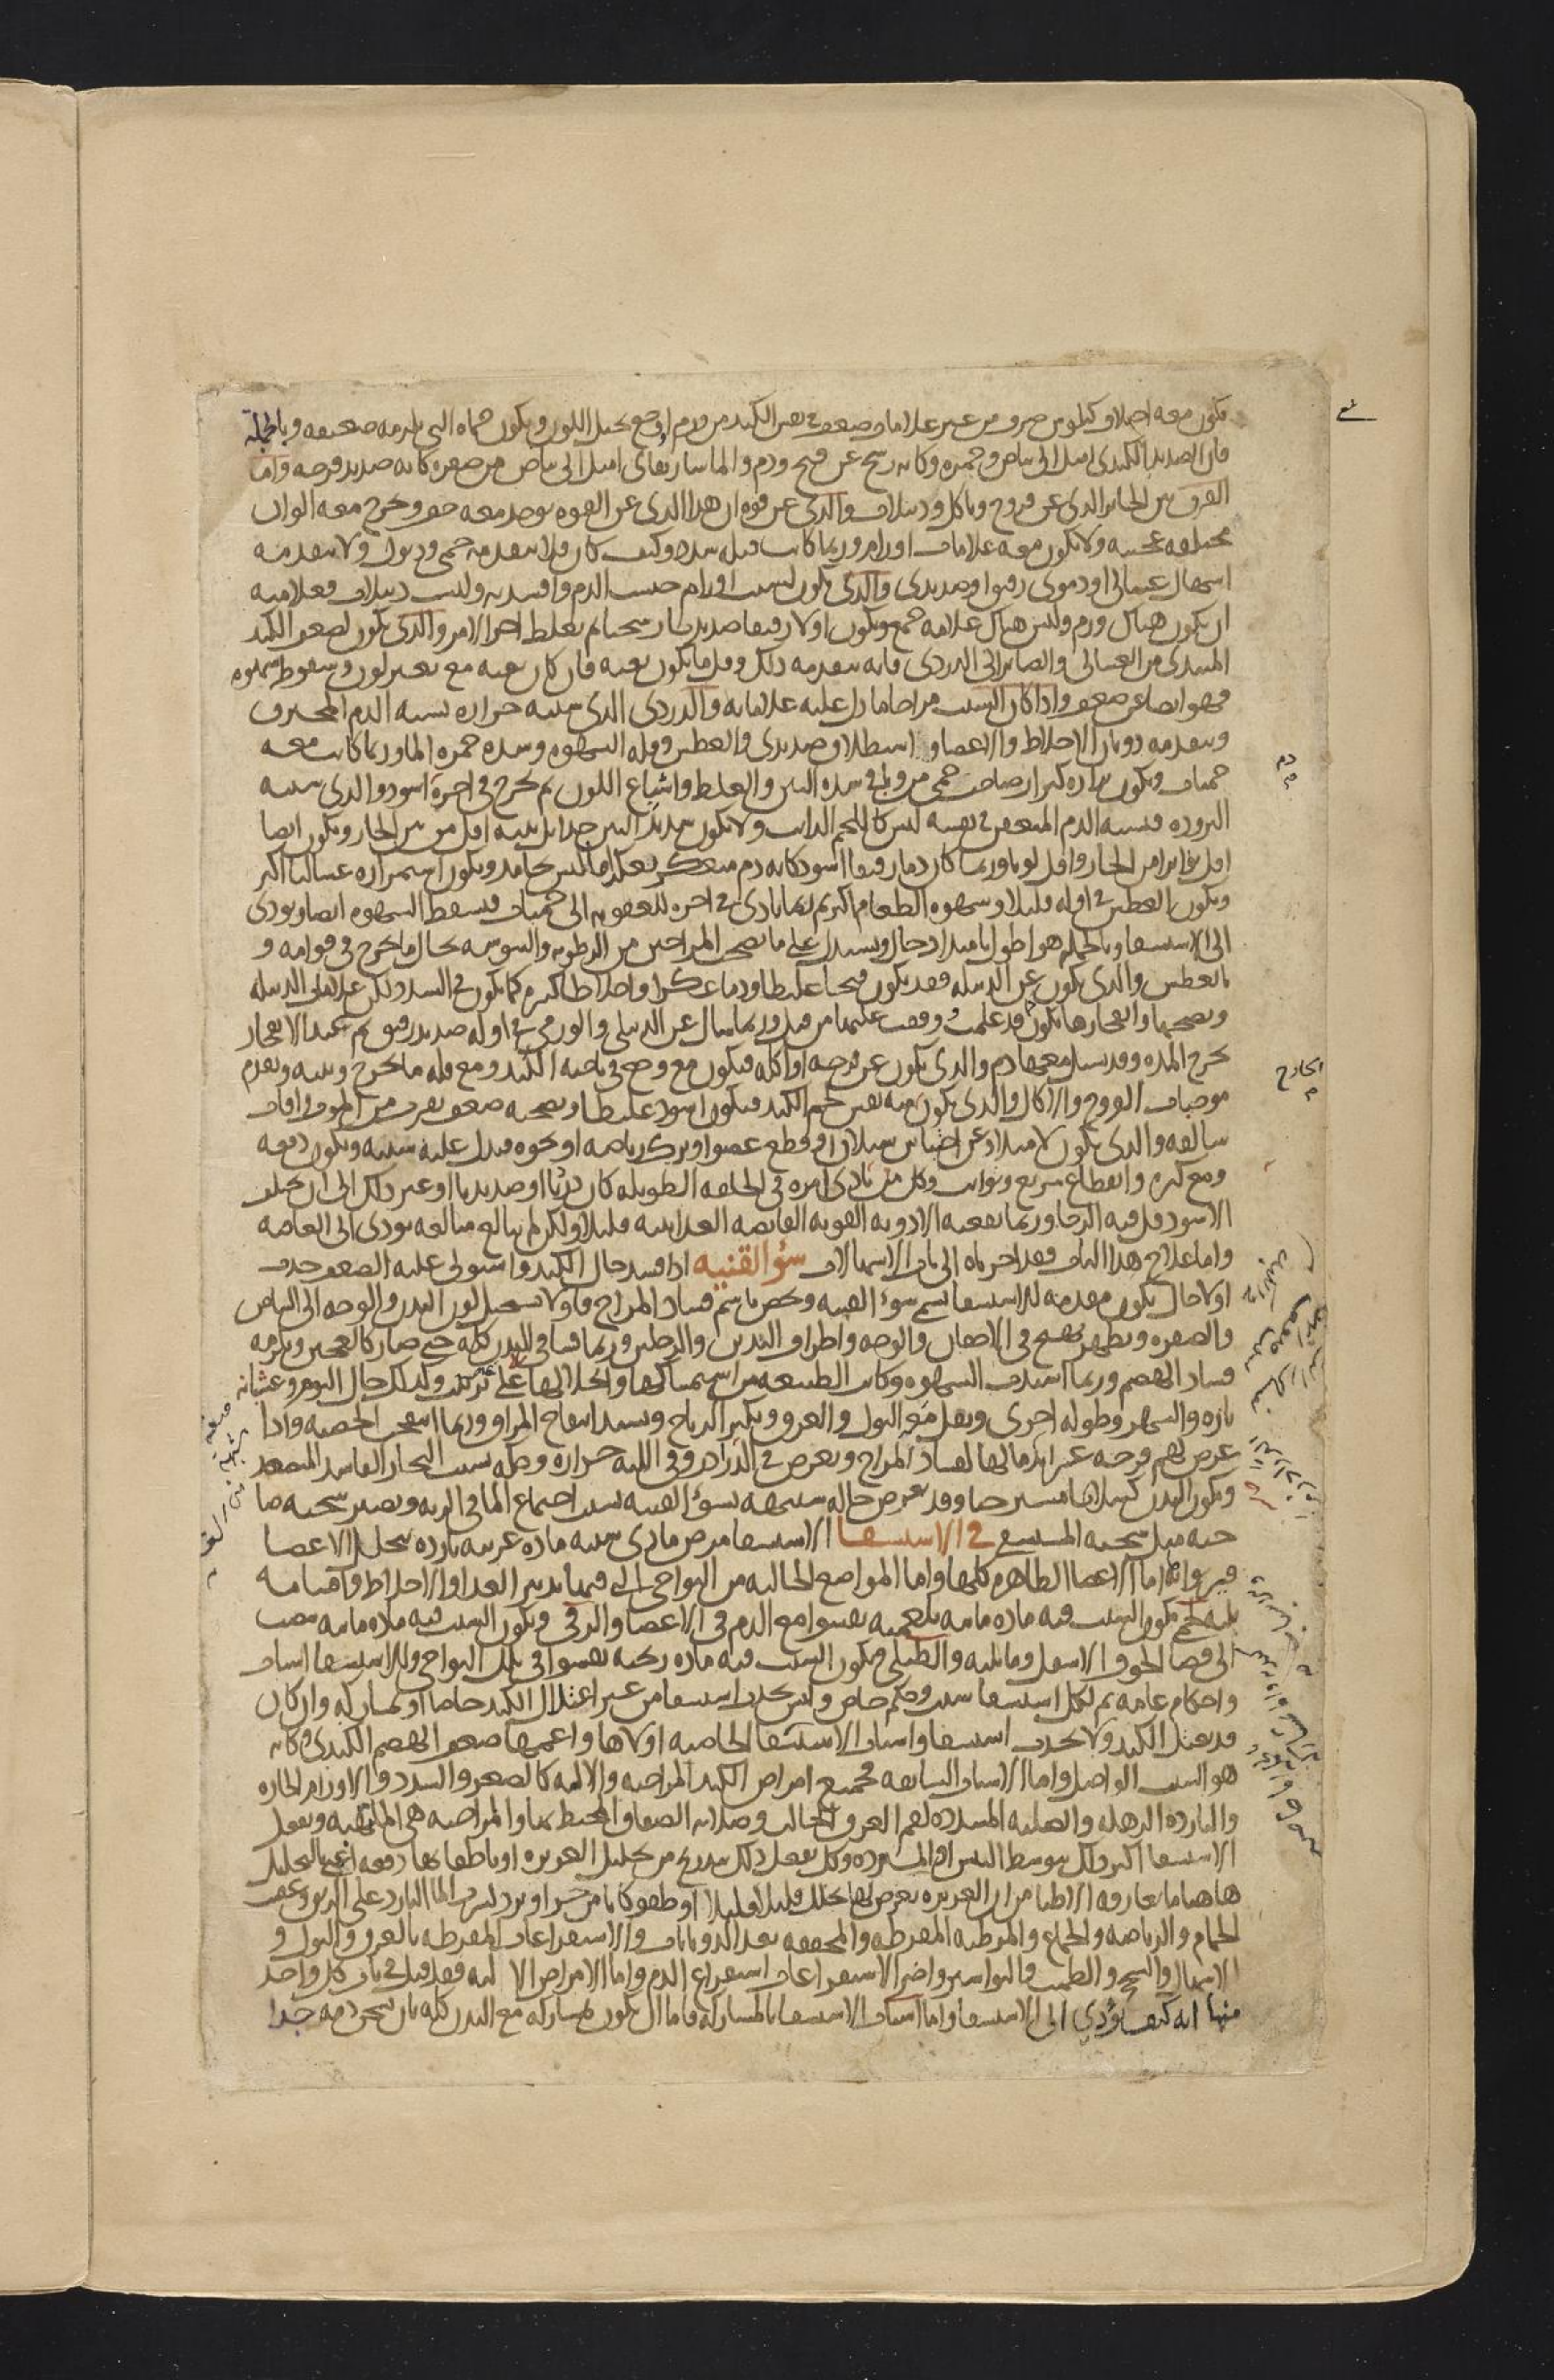 يكون معه اختلاف كيلوس صرف من غير علامات ضعف في نفس الكبد من ورم او وجع يحيل اللون ويكون حماه التي تلزمه ضعيفه وبالجملة
فان الصديد الكبدي اميل الى بياض وحمرة وكانه رشح عن قيح ودم والماساريقاي اميل الى بياض من صفره كانه صديد قرحه واما
الفرق بين الخاثر الذي عن قروح وتاكل ودبيلات والذي عن قوه ان هذا الذي عن القوه يوجد معه خف ويخرج معه الوان
مختلفه عجيبه ولا يكون معه علامات اورام وربما كانت قبله سدد وكيف كان فلا يتقدمه حمى وذبول ولا يتقدمه
اسهال غسالى او دموى رقيق او صديدى والذي يكون لسبب اورام حبست الدم وافسدته وليست دبيلات فعلامته
ان يكون هناك ورم وليس هناك علامه جمع ويكون اولا رقيقا صديديا رشحيا ثم يغلظ اخر الامر والذي يكون لضعف الكبد
المبتدى من الغسالى والصاير الى الدردى فانه يتقدمه ذلك وقلما يكون بغته فان كان بغته مع تغير لون وسقوط شهوه
فهو ايضا عن ضعف واذا كان السبب مزاجا ما دل عليه علاماته والدردى الذي سببه حراره يشبه الدم المحترق
ويتقدمه ذوبان الاخلاط والاعضا و استطلاق صديدى والعطش وقله الشهوه وشده حمره الما وربما كانت معه
حميات ويكون برازه كبراز صاحب حمى من وبا في شده النتن والغلظ واشباع اللون ثم يخرج في اخرة اسود والذي سببه
البروده فيشبه الدم المتعفن في نفسه ليس كاللحم الذايب ولا يكون شديد النتن جدا بل نتنه اقل من نتن الحار ويكون ايضا
اقل تواترا من الحار واقل لونا وربما كان دما رقيقا اسود كانه دم متعكر تعكرا ما ليس بجامد ويكون استمراره غساليا اكثر
ويكون العطش في اوله قليلا وشهوه الطعام اكثر ثم ربما تادى في اخره للعفونه الى حميات فتسقط الشهوه ايضا ويودى
الى الاستسقا وبالجمله هو اطول امتداد حال ويستدل على ما يصحب المزاجين من الرطوبه واليبوسه بحال ما يخرج في قوامه و
بالعطش والذي يكون عن الدبيله فقد يكون قيحا غليظا ودما عكرا واخلاطا كثيره كما يكون في السدد ولكن علامات الدبيله
ونضجها وانفجارها يكون قد علمت ووقفت عليها من قبل وربما سال عن الدبيلى والورمى في اوله صديد رقيق ثم عند الانفجار
تخرج المده وقد يسيل معها دم والذي يكون عن قرحه او اكله فيكون مع وجع في ناحيه الكبد ومع قله ما يخرج ونتنه وتقدم
موجبات القروح والاكال والذي يكون منه نفس لحم الكبد فيكون اسود غليظا ويصحبه ضعف يقرب من الموت واوقات
سالفه والذي يكون لامتلا وعن احتباس سيلان او قطع عضو او ترك رياضه او نحوه فيدل عليه سببه ويكون دفعه
ومع كثره وانقطاع سريع ونوايب وكل من تادى امره في الخلفه الطويله كان دمويا او صديديا او غير ذلك الى ان يخلف
الاسود قل فيه الرجا وربما نفعته الادويه القويه القابضه الغذاييه قليلا ولكن لم تبالغ مبالغه تودى الى العافيه
واما علاج هذا الباب فقد اخرناه الى باب الاسهالات سؤ القنيه اذا فسد حال الكبد واستولى عليه الضعف حدث
اولا حال يكون مقدمه للاستسقا تسمى سوء القنيه وتخص باسم فساد المزاج فاولا يستحيل لون البدن والوجه الى البياض
والصفره ويظهر تهيج في الاجفان والوجه واطراف اليدين والرجلين وربما فشا في البدن كله حتى صار كالعجين ويلزمه
فساد الهضم وربما اشتدت الشهوه وكانت الطبيعه من استمساكها وانحلالها على غير ترتيب وكذلك حال النوم وغشيانه
تاره والسهر وطوله اخرى ويقل معه البول والعرق وتكثر الرياح ويشتد انتفاخ المراق وربما انتفخت الخصيه واذا
عرض لهم قرحه عسر اندمالها لفساد المزاج ويعرض في الدرادر وفى اللثه حراره وحكه بسبب البخار الفاسد المتصعد
ويكون البدن كسلانا مسترخيا وقد تعرض حاله شبيهه بسؤ القنيه بسبب اجتماع الما في الريه ويصير سحنه صا
حبه مثل سحنه المستسقى في الاستسقا الاستسقا مرض مادى سببه ماده غريبه بارده تتخلل الاعضا
فتربو بها اما الاعضا الظاهره كلها واما المواضع الخاليه من النواحى التى فيها تدبير الغذا والاخلاط واقسامه
ثلثه لحمى يكون السبب فيه ماده ماييه بلغميه تفشو مع الدم في الاعضا والزقى ويكون السبب فيه ماده ماييه تنصب
الى فضا الجوف الاسفل وما يليه والطبلى ويكون السبب فيه ماده ريحيه تفشو في تلك النواحى وللاستسقا اسباب
واحكام عامه ثم لكل استسقا سبب وحكم خاص وليس يحدث استسقا من غير اعتلال الكبد خاصا او بمشاركه وان كان
قد يعتل الكبد ولا يحدث استسقا واسباب الاستسقا الخاصيه اولاها واعمها ضعف الهضم الكبدى فكانه
هو السبب الواصل واما الاسباب السابقه فجميع امراض الكبد المزاجيه والاليه كالصغر والسدد والاورام الحاره
والبارده الرهله والصلبه المسدده لفم العرق الجالب وصلابه الصفاق المحيط بها والمزاجيه هى الملتهبه ويفعل
الاستسقا اكثر ذلك بتوسط اليبس او المبرده وكل يفعل ذلك بتدريج من تحليل الغريزه او باطفايها دفعه اعنى بالتحليل
هاهنا ما تعارفه الاطبا من ان الغريزه يعرض لها تحلل قليلا قليلا او طفو كانا من حر او برد كشرب الما البارد على الريق وعقيب
الحمام والرياضه والجماع والمرطبه المفرطه والمجففه بعد الذوبانات والاستفراغات المفرطه بالعرق والبول و
الاسهال والسحج والطمث والبواسير واضر الاستفراغات استفراغ الدم واما الامراض الاليه فقد قيل في باب كل واحد
منها انه كيف يؤدي الى الاستسقا واما اسباب الاستسقا بالمشاركه فاما ان يكون بمشاركه مع البدن كله بان يسخن دمه جدا